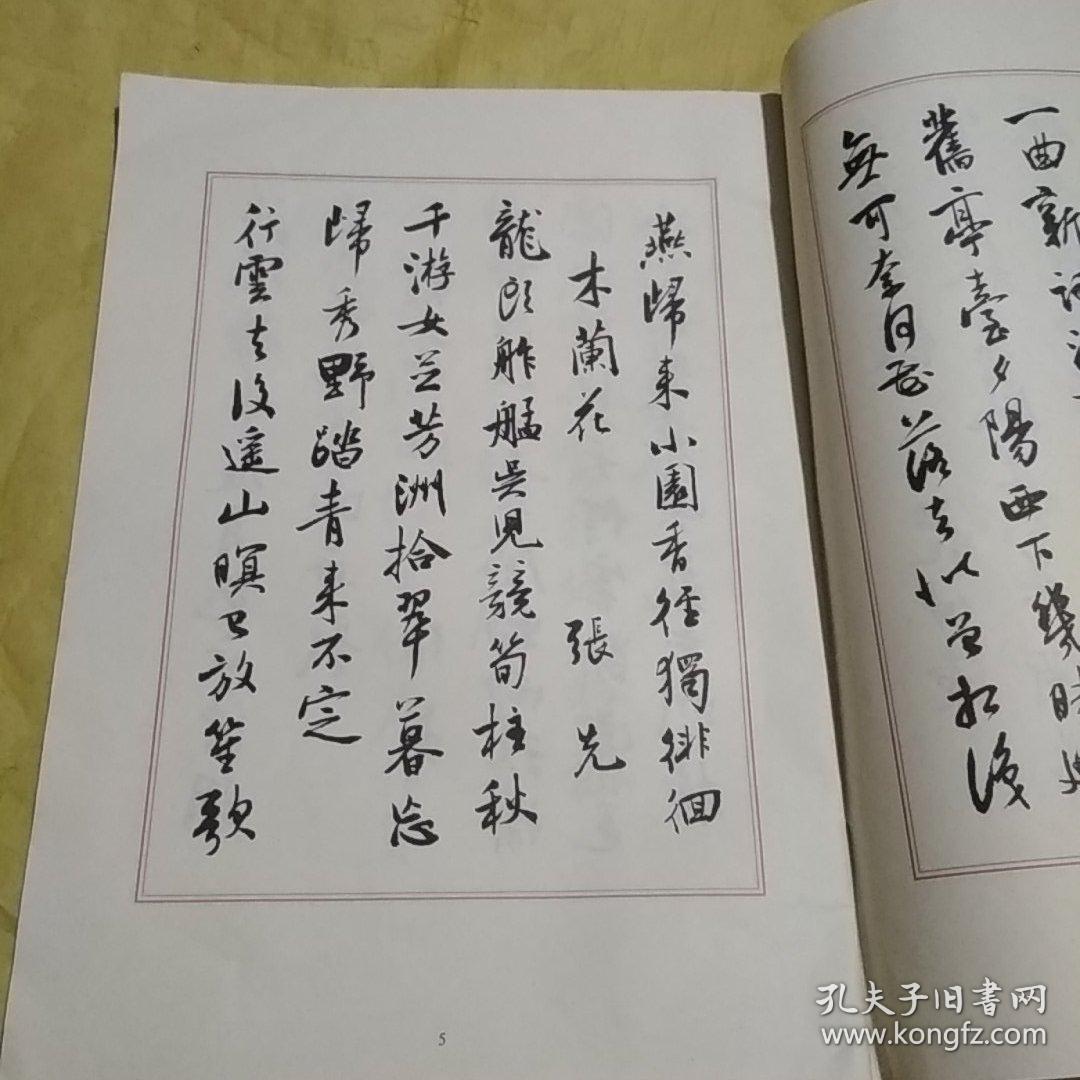 一曲新詞
舊亭臺夕陽西下幾時
無可奈何花落去似曾相識
燕歸來小園香徑獨徘徊
木蘭花 張先
龍頭舴艋吳兒競筍柱秋
千游女並芳洲拾翠暮忘
歸秀野踏青來不定
行雲去後遙山暝已放笙歌
5
孔夫子旧书网
www.kongfz.com